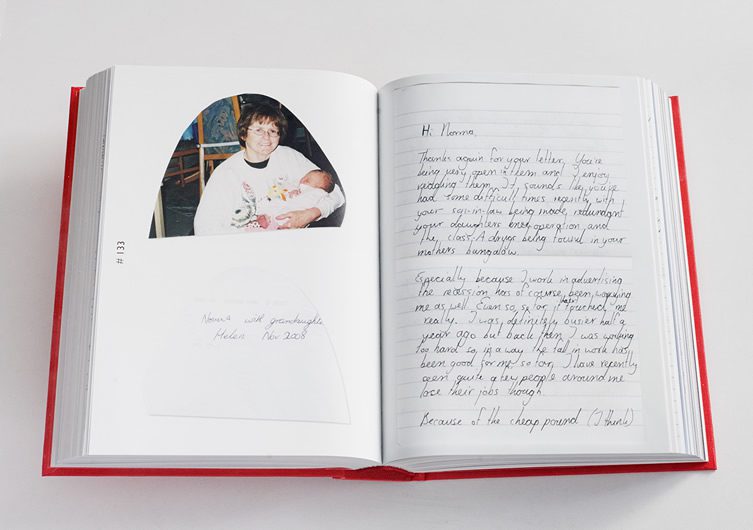 # 133
Norma with grandaughter
Helen Nov 2008
Hi Norma,
Thanks again for your letter. You're
being very open in them and I enjoy
reading them. It sounds like you've
had some difficult times recently with
your son-in-law being made redundant
your daughters knee operation and
the class-A drugs being found in your
mothers bungalow.
Especially because I work in advertising
the recession has of course been worrying
me as well. Even so, so far it hasn't touched me
really. I was definitely busier half a
year ago but back then I was working
too hard so in a way the fall in work has
been good for me so far. I have recently
seen quite a few people around me
lose their jobs though.
Because of the cheap pound (I think)